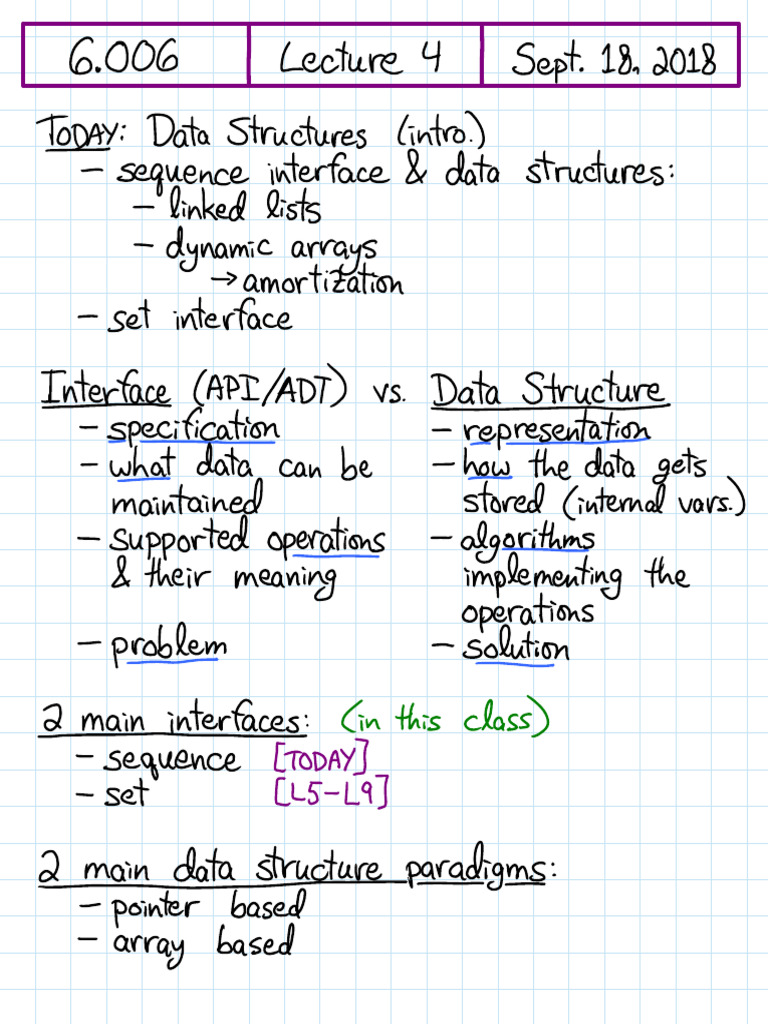 6.006 Lecture 4 Sept. 18, 2018
TODAY: Data Structures (intro.)
– sequence interface & data structures:
– linked lists
– dynamic arrays
→ amortization
– set interface
Interface (API/ADT) vs. Data Structure
– specification – representation
– what data can be – how the data gets
maintained stored (internal vars.)
– supported operations – algorithms
& their meaning implementing the
operations
– problem – solution
2 main interfaces: (in this class)
– sequence [TODAY]
– set [L5–L9]
2 main data structure paradigms:
– pointer based
– array based